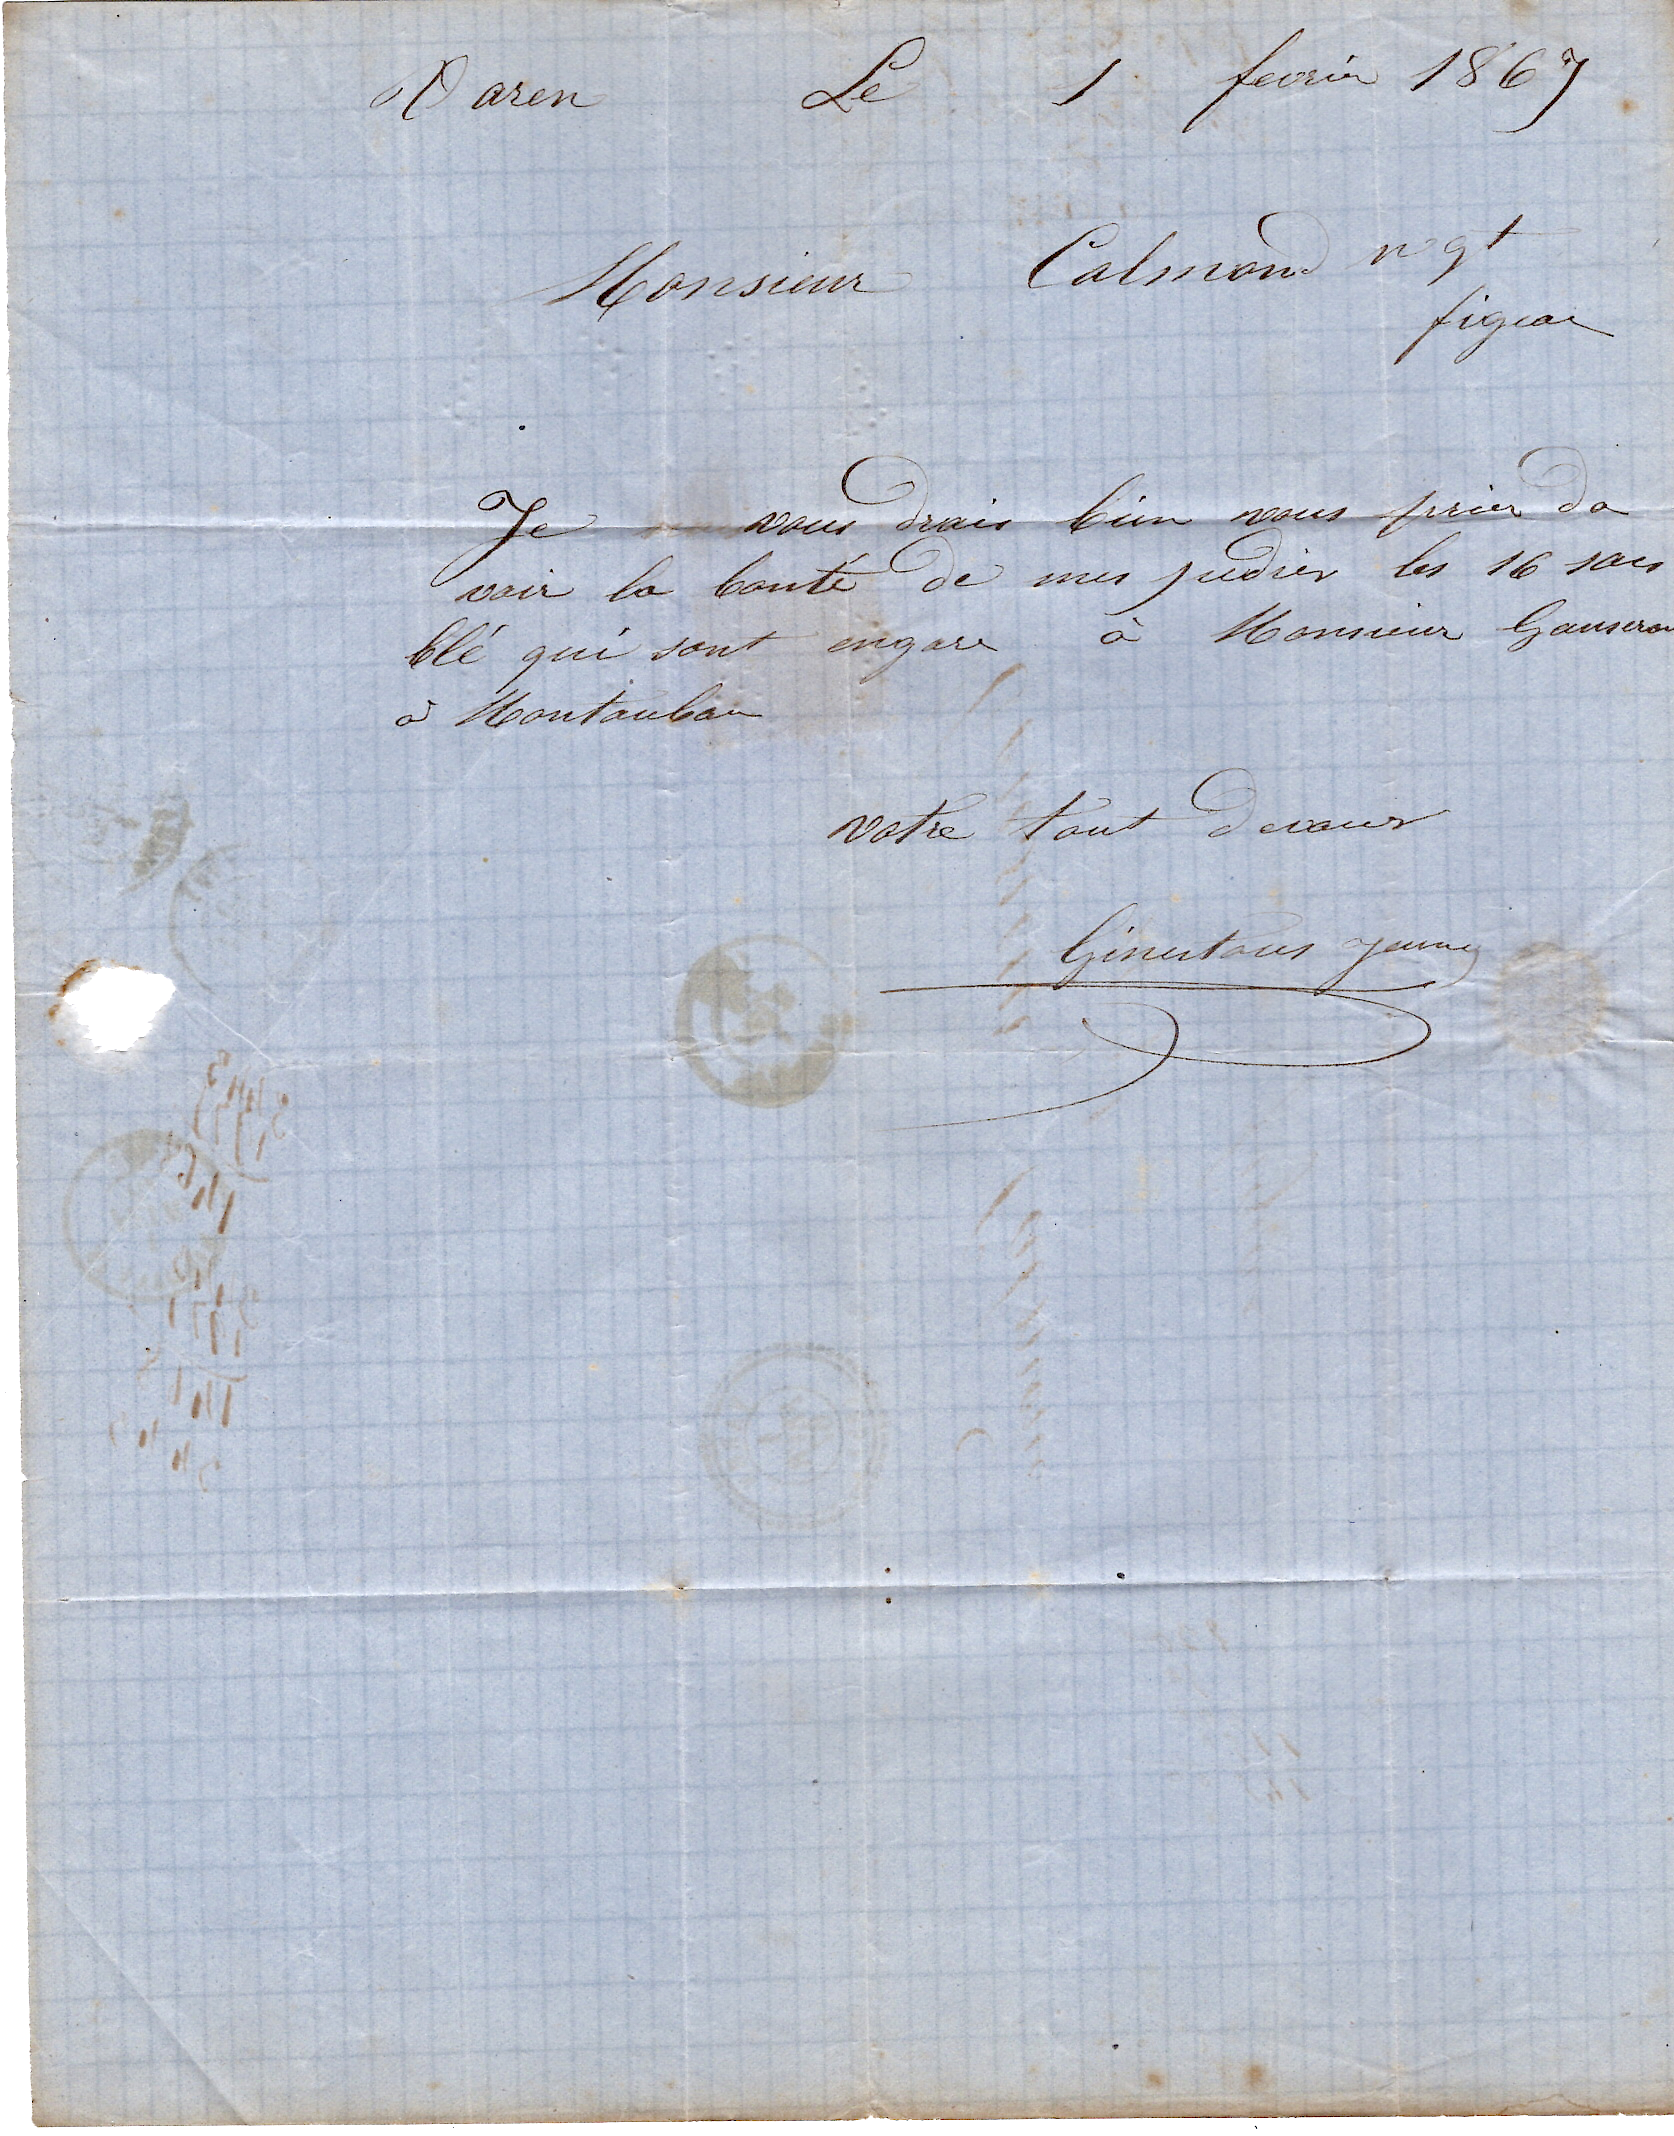 Varen Le 1 fevrier 1867
Monsieur Calmond ngt
figeac
Je vous drais bien vous prier da
voir la bonté de mes pedier les 16 sacs
blé qui sont engare à Monsieur
à Montauban
votre tout devoues
Ginestous jeune